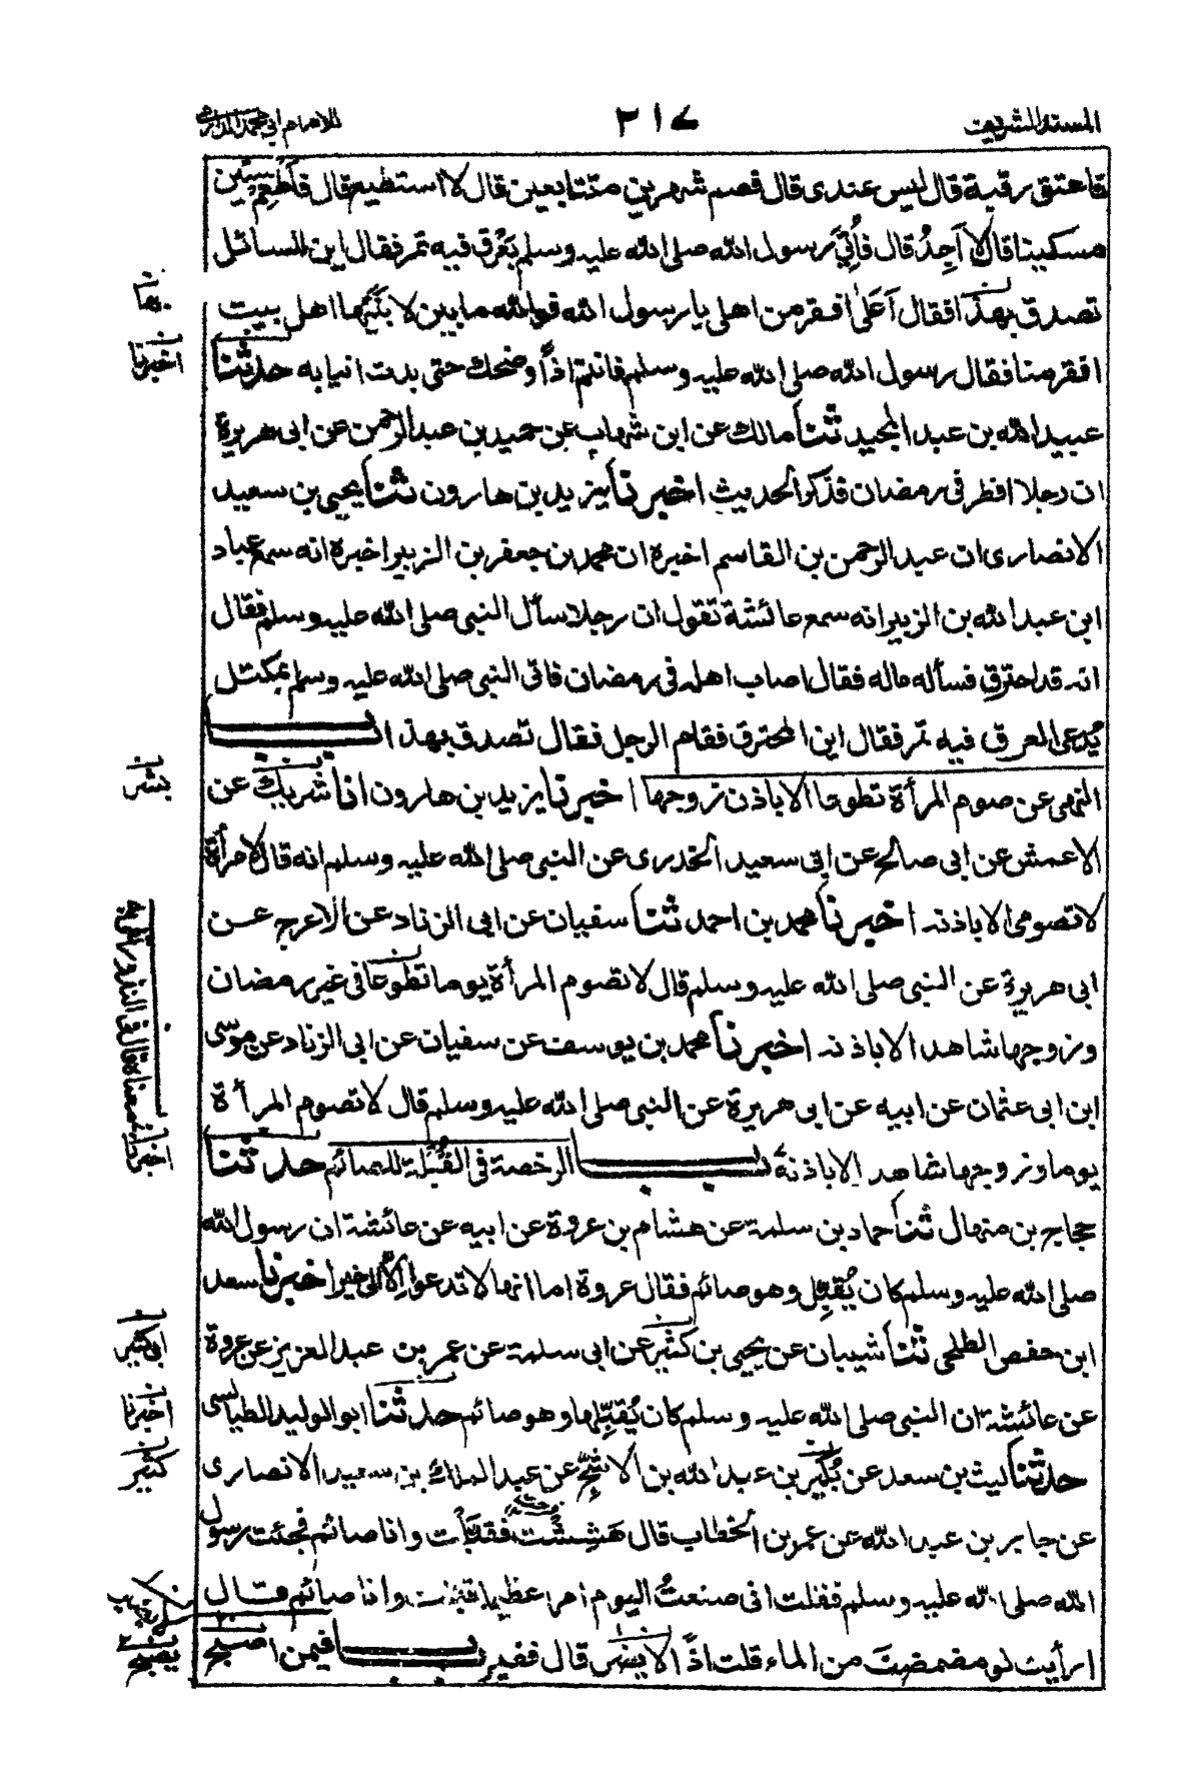 المسند الشريف
٢١٧
للامام ابي محمد الدارمي
فاعتق رقبة قال ليس عندى قال فصم شهرين متتابعين قال لا استطيع قال فأطعم ستين
مسكينا قال لا آجِدُ قال فأُتِيَ رسول الله صلى الله عليه وسلم بَعْرَق فيه تمر فقال اين السائل
تصدق بهذا فقال آعَلٰى افقر من اهلى يا رسول الله فوالله ما بين لا بَتَيْها اهل بيت
افقر منا فقال رسول الله صلى الله عليه وسلم فانتم اذاً وضحك حتى بدت انيابه حدثنا
عبيد الله بن عبد المجيد ثنا مالك عن ابن شهاب عن حميد بن عبد الرحمن عن ابى هريرة
ان رجلا افطر فى رمضان فذكر الحديث اخبرنا يزيد بن هارون ثنا يحيى بن سعيد
الانصارى ان عبد الرحمن بن القاسم اخبره ان محمد بن جعفر بن الزبير اخبره انه سمع عباد
ابن عبد الله بن الزبير انه سمع عائشة تقول ان رجلا سأل النبى صلى الله عليه وسلم فقال
انه قد احترق فسأله ماله فقال اصاب اهله فى رمضان فاتى النبى صلى الله عليه وسلم بمكتل
يُدعى العرق فيه تمر فقال اين المحترق فقام الرجل فقال تصدق بهذا باب
النهى عن صوم المرأة تطوعا الا باذن زوجها اخبرنا يزيد بن هارون انا شريك عن
الاعمش عن ابى صالح عن ابى سعيد الخدرى عن النبى صلى الله عليه وسلم انه قال لامرأة
لا تصومى الا باذنه اخبرنا محمد بن احمد ثنا سفيان عن ابى الزناد عن الاعرج عن
ابى هريرة عن النبى صلى الله عليه وسلم قال لا تصوم المرأة يوما تطوعا فى غير رمضان
وزوجها شاهد الا باذنه اخبرنا محمد بن يوسف عن سفيان عن ابى الزناد عن موسى
ابن ابى عثمان عن ابيه عن ابى هريرة عن النبى صلى الله عليه وسلم قال لا تصوم المرأة
يوما وزوجها شاهد الا باذنه باب الرخصة فى القُبْلَة للصائم حدثنا
حجاج بن منهال ثنا حماد بن سلمة عن هشام بن عروة عن ابيه عن عائشة ان رسول الله
صلى الله عليه وسلم كان يُقَبِّل وهو صائم فقال عروة اما انها لا تدعوا الى خير اخبرنا سعد
ابن حفص الطلحى ثنا شيبان عن يحيى بن كثير عن ابى سلمة عن عمر بن عبد العزيز عن عروة
عن عائشة ان النبى صلى الله عليه وسلم كان يُقَبِّلها وهو صائم حدثنا ابو الوليد الطيالسى
حدثنا ليث بن سعد عن بُكَير بن عبد الله بن الاشج عن عبد الملك بن سعيد الانصارى
عن جابر بن عبد الله عن عمر بن الخطاب قال هَشِشْت فقبّلت وانا صائم فجئت رسول
الله صلى الله عليه وسلم فقلت انى صنعتُ اليوم امرا عظيما قبّلت وانا صائم قال
ارأيت لو مضمضت من الماء قلت اذاً لا يضر قال ففيم باب فيمن اصبح
بهٰا
اخبرنا
اخبرنا
ابى كثير
اخبرنا
كثير
يصبح